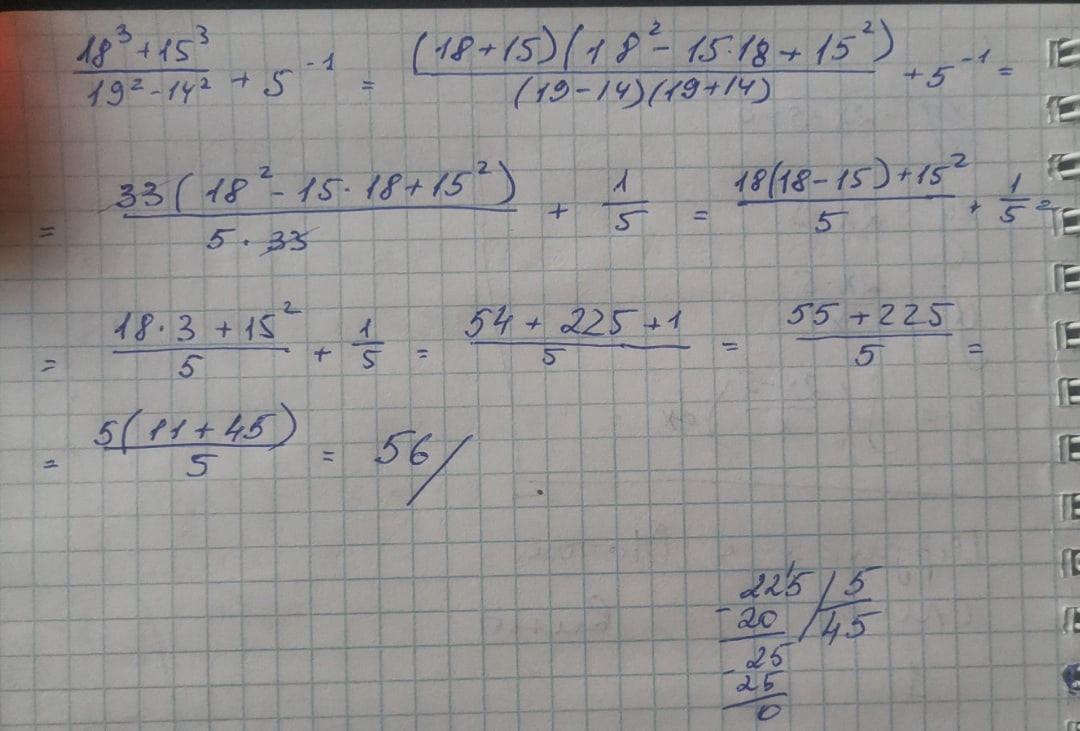 (18³ + 15³)/(19² - 14²) + 5⁻¹ = ((18 + 15)(18² - 15·18 + 15²))/((19 - 14)(19 + 14)) + 5⁻¹ =
= (33(18² - 15·18 + 15²))/(5·33) + 1/5 = (18(18 - 15) + 15²)/5 + 1/5 =
= (18·3 + 15²)/5 + 1/5 = (54 + 225 + 1)/5 = (55 + 225)/5 =
= (5(11 + 45))/5 = 56/
- 225 / 5
20 / 45
- 25
25
0